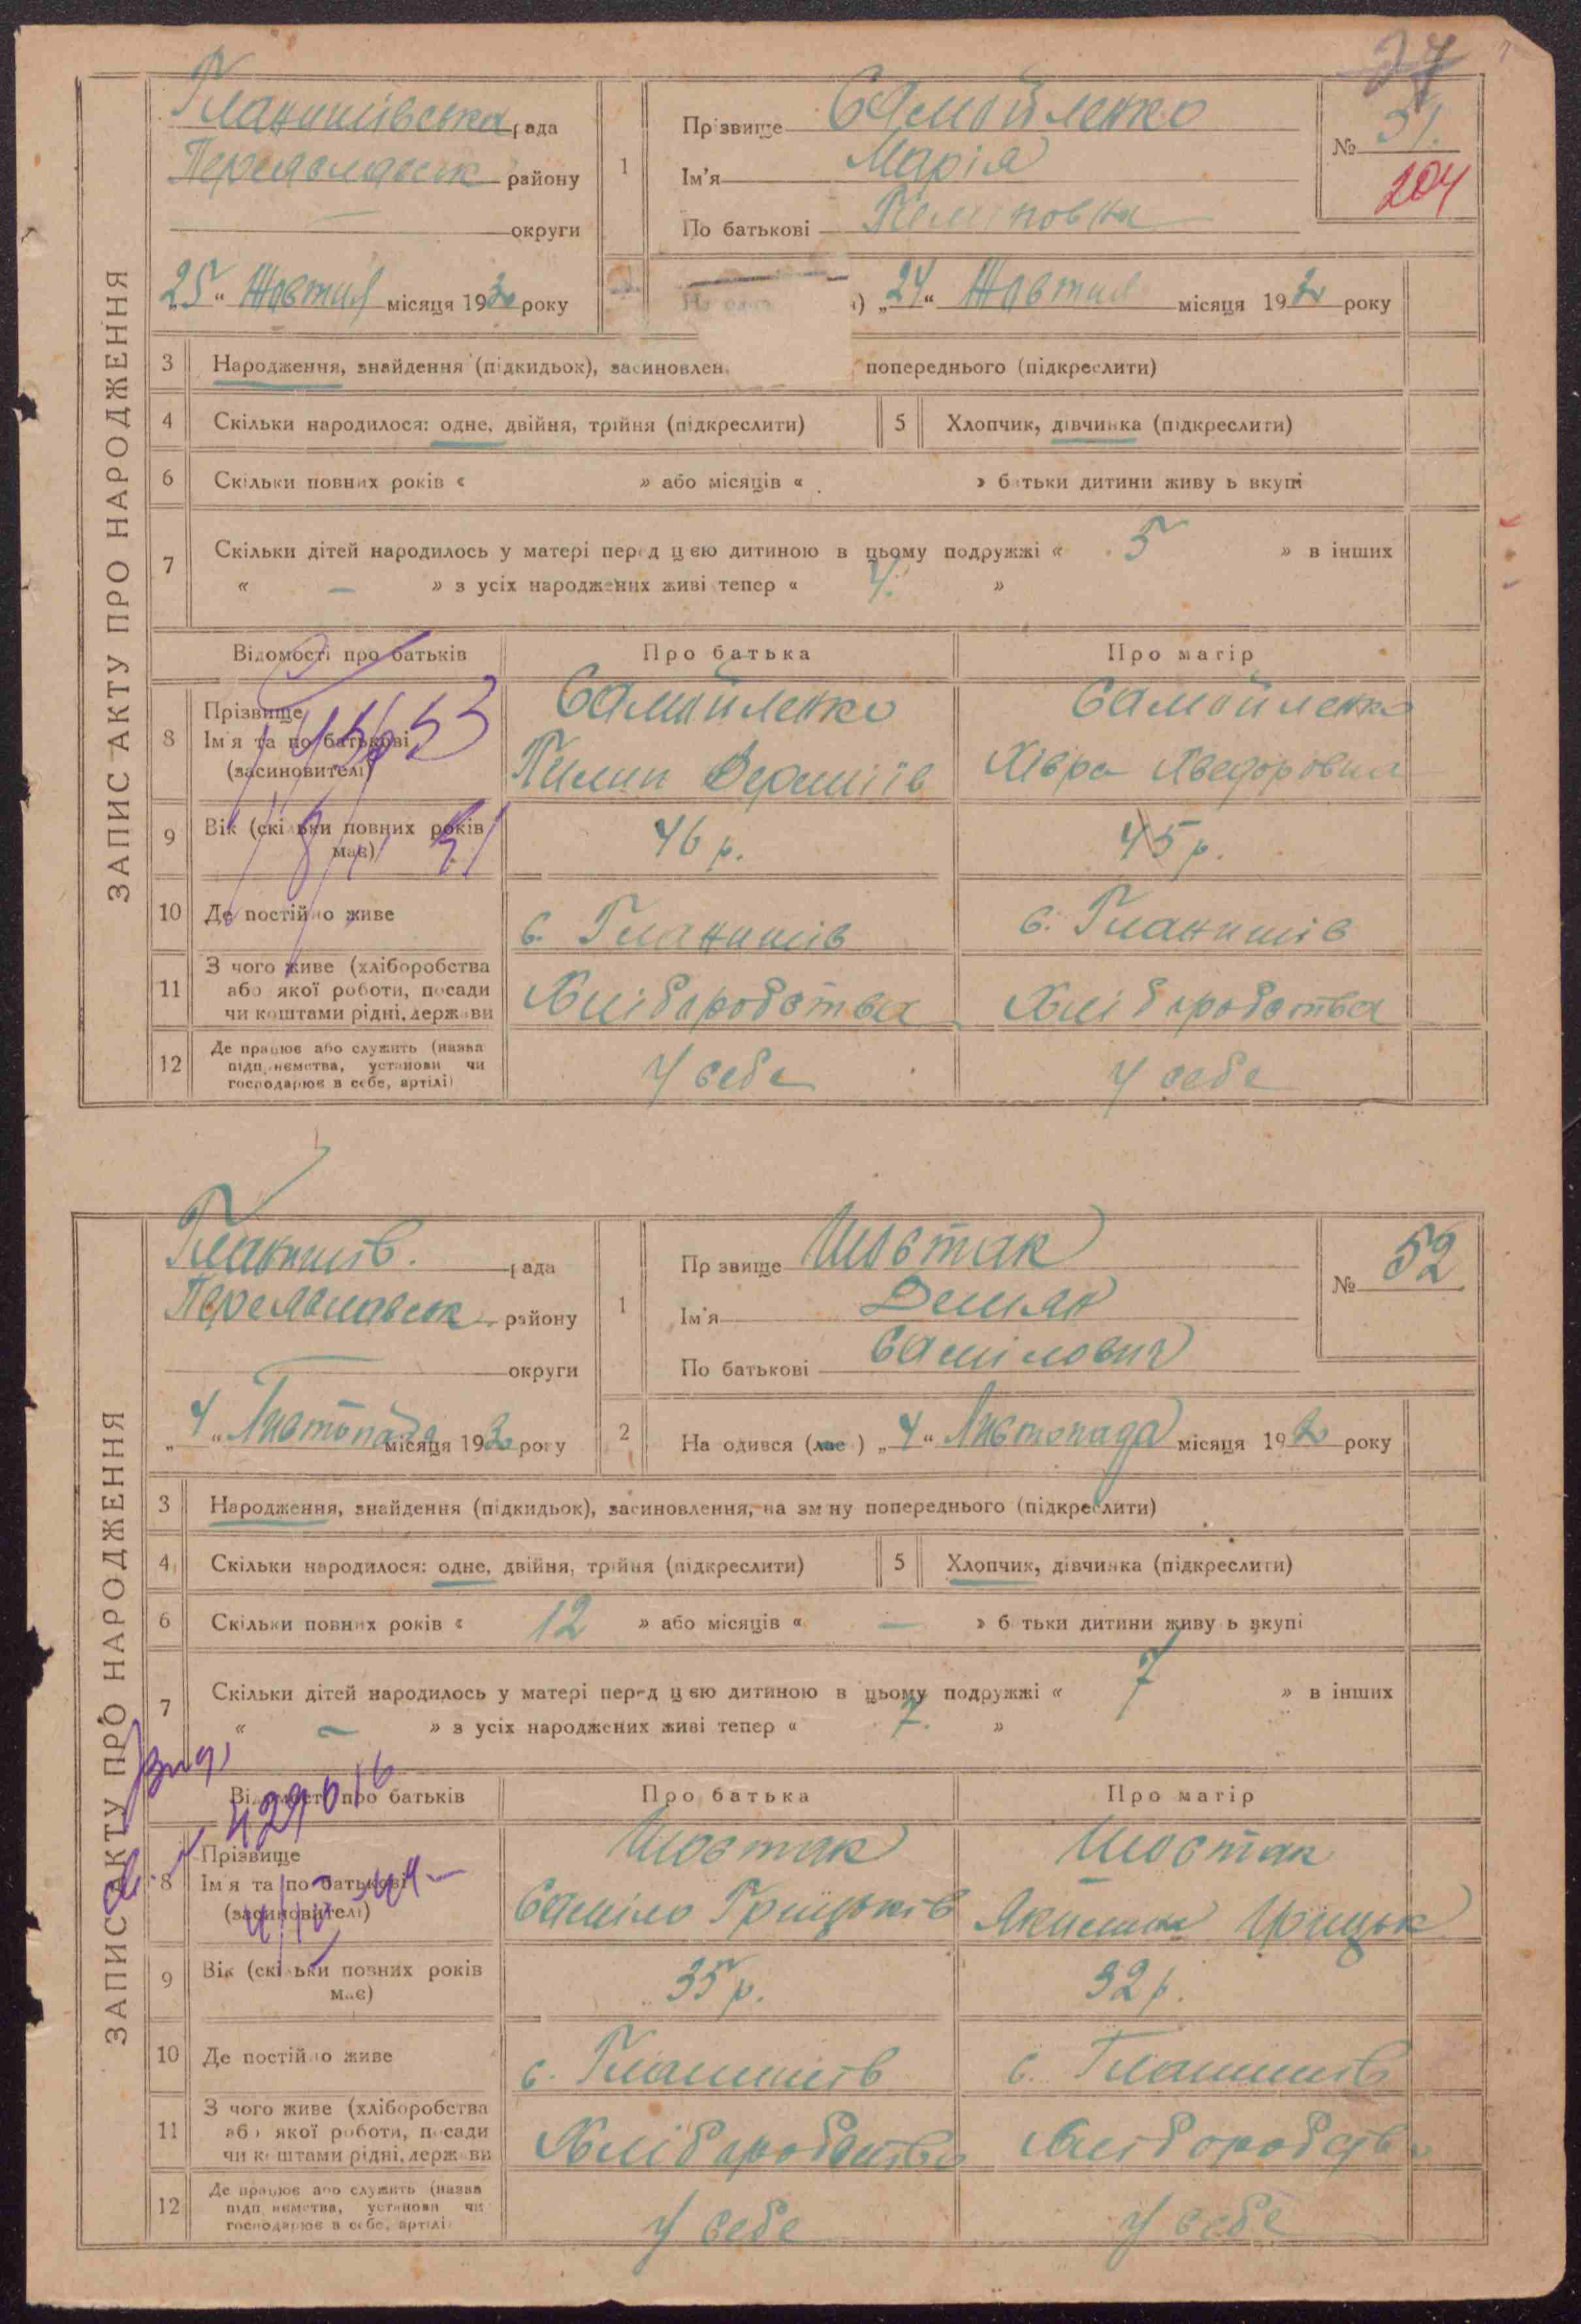 ЗАПИС АКТУ ПРО НАРОДЖЕННЯ
27
Гланишівська рада
Переяславськ району
округи
"25" Жовтня місяця 1930 року
1
Прізвище Самойленко
Ім'я Марія
По батькові Пилиповна
№ 51.
204
"24" Жовтня місяця 1930 року
3 Народження, знайдення (підкидьок), засиновлен попереднього (підкреслити)
4 Скільки народилося: одне, двійня, трійня (підкреслити) 5 Хлопчик, дівчинка (підкреслити)
6 Скільки повних років « » або місяців « » батьки дитини живуть вкупі
7 Скільки дітей народилось у матері перед цею дитиною в цьому подружжі « 5 » в інших
« – » з усіх народжених живі тепер « 4. »
Відомості про батьків Про батька Про матір
8 Прізвище Самойленко Самойленко
Ім'я та по батькові Пилип Хівра Хведоровна
(засиновителі)
9 Вік (скільки повних років має) 46 р. 45 р.
10 Де постійно живе с. Гланишів с. Гланишів
11 З чого живе (хліборобства
або якої роботи, посади Хліборобства Хліборобства
чи коштами рідні, держави
12 Де працює або служить (назва
підприємства, установи чи у себе у себе
господарює в себе, артілі)
ЗАПИС АКТУ ПРО НАРОДЖЕННЯ
Гланишів. рада
Переяславськ району
округи
"4" Листопада місяця 1930 року
1
Прізвище Шостак
Ім'я Демян
По батькові Самілович
№ 52
2 Народився (лась) "4" Листопада місяця 1930 року
3 Народження, знайдення (підкидьок), засиновлення, на зміну попереднього (підкреслити)
4 Скільки народилося: одне, двійня, трійня (підкреслити) 5 Хлопчик, дівчинка (підкреслити)
6 Скільки повних років « 12 » або місяців « – » батьки дитини живуть вкупі
7 Скільки дітей народилось у матері перед цею дитиною в цьому подружжі « 7 » в інших
« – » з усіх народжених живі тепер « 7. »
Відомості про батьків Про батька Про матір
8 Прізвище Шостак Шостак
Ім'я та по батькові Саміло Грицьків
(засиновителі)
9 Вік (скільки повних років має) 35 р. 32 р.
10 Де постійно живе с. Гланишів с. Гланишів
11 З чого живе (хліборобства
або якої роботи, посади Хліборобство Хліборобство
чи коштами рідні, держави
12 Де працює або служить (назва
підприємства, установи чи у себе у себе
господарює в себе, артілі)